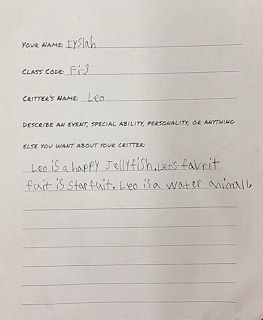 YOUR NAME: Iyslah
CLASS CODE: Fi-J
CRITTER'S NAME: Leo
DESCRIBE AN EVENT, SPECIAL ABILITY, PERSONALITY, OR ANYTHING
ELSE YOU WANT ABOUT YOUR CRITTER:
Leo is a happy Jellyfish. Leos favrit
fuit is starfuit. Leo is a water animall